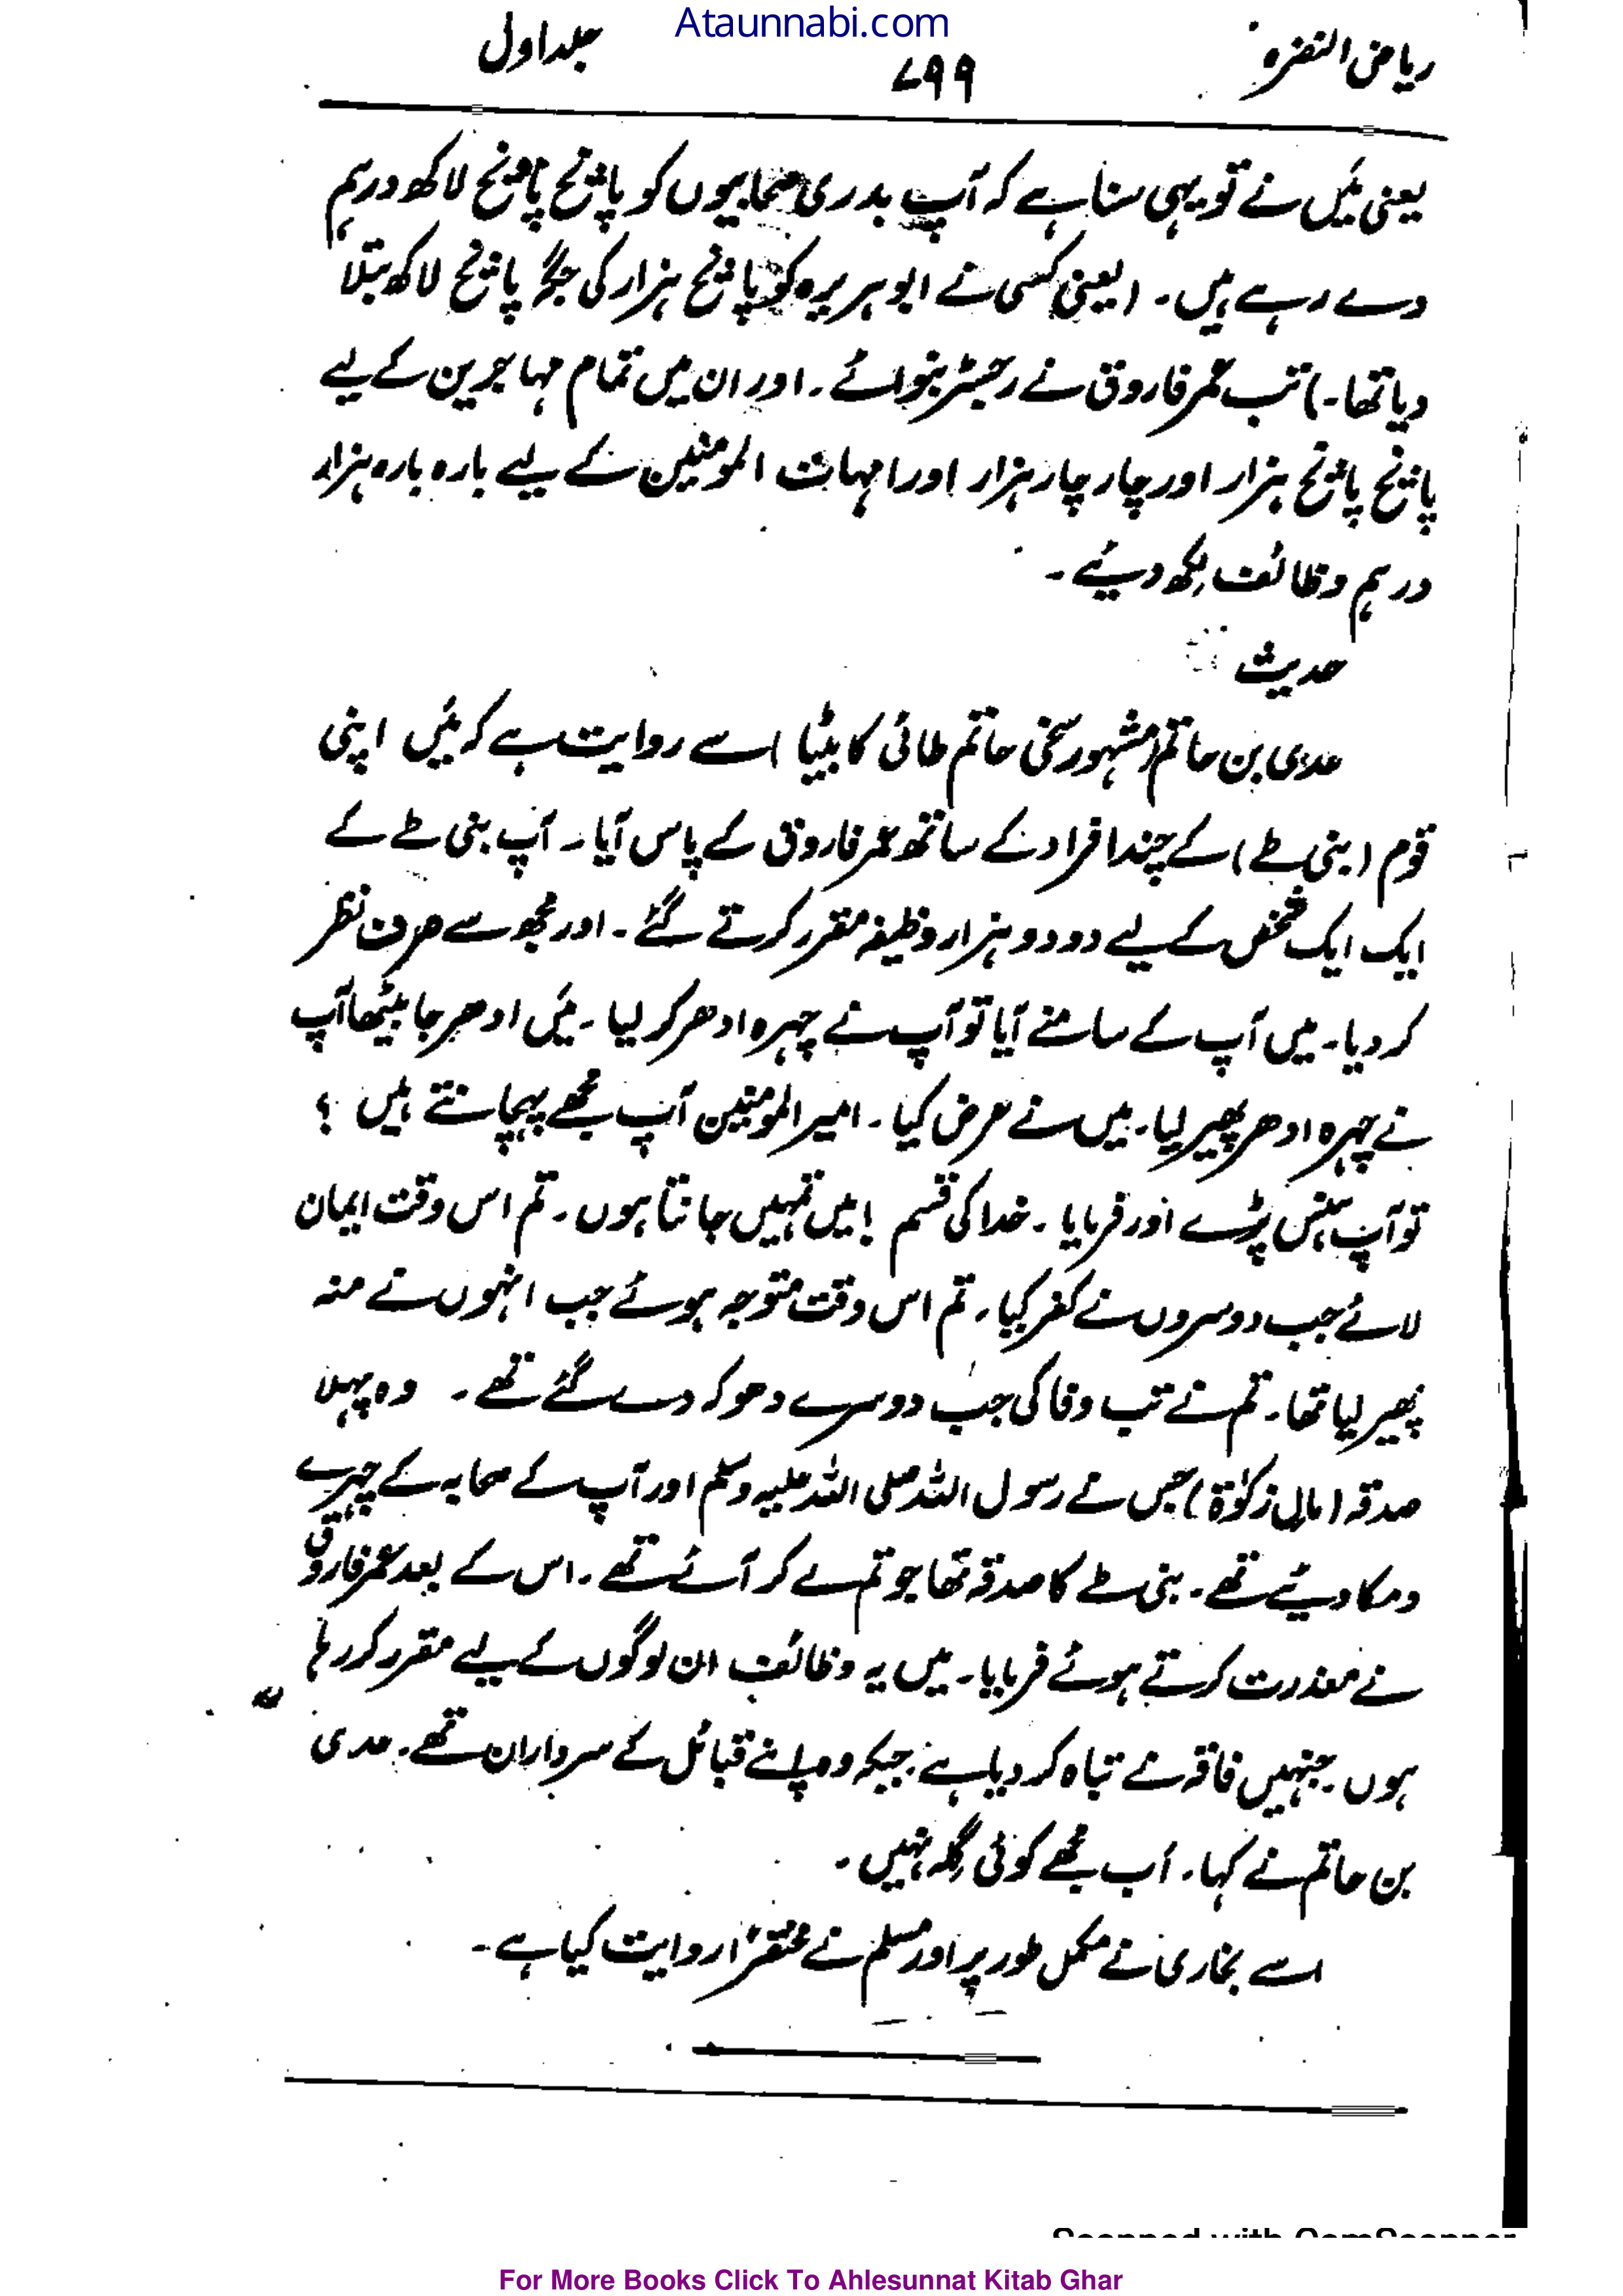 Ataunnabi.com
ریاض النضرہ ۷۹۹ جلد اول
یعنی مَیں نے تو یہی سنا ہے کہ آپ بدری صحابیوں کو پانچ پانچ لاکھ درہم
دے رہے ہیں۔ (یعنی کسی نے ابو ہریرہ کو پانچ ہزار کی جگہ پانچ لاکھ بتلا
دیا تھا۔) تب عمر فاروق نے رجسٹر بنوائے۔ اور ان میں تمام مہاجرین کے لیے
پانچ پانچ ہزار اور چار چار ہزار اور امہات المومنین کے لیے بارہ بارہ ہزار
درہم وظائف لکھ دیئے۔
حدیث
عدی بن حاتم (مشہور سخی حاتم طائی کا بیٹا) سے روایت ہے کہ مَیں اپنی
قوم (بنی طے) کے چند افراد کے ساتھ عمر فاروق کے پاس آیا۔ آپ بنی طے کے
ایک ایک شخص کے لیے دو دو ہزار وظیفہ مقرر کرتے گئے۔ اور مجھ سے صرف نظر
کر دیا۔ میں آپ کے سامنے آیا تو آپ نے چہرہ ادھر کر لیا۔ مَیں ادھر جا بیٹھا آپ
نے چہرہ ادھر پھیر لیا۔ میں نے عرض کیا۔ امیر المومنین آپ مجھے پہچانتے ہیں ؟
تو آپ ہنس پڑے اور فرمایا۔ خدا کی قسم ! میں تمہیں جانتا ہوں۔ تم اس وقت ایمان
لائے جب دوسروں نے کفر کیا۔ تم اس وقت متوجہ ہوئے جب انہوں نے منہ
پھیر لیا تھا۔ تم نے تب وفا کی جب دوسرے دھوکہ دے گئے تھے۔ وہ پہلا
صدقہ (مالِ زکوٰۃ) جس نے رسول اللہ صلی اللہ علیہ وسلم اور آپ کے صحابہ کے چہرے
دمکا دیئے تھے۔ بنی طے کا صدقہ تھا جو تم لے کر آئے تھے۔ اس کے بعد عمر فاروق
نے معذرت کرتے ہوئے فرمایا۔ میں یہ وظائف ان لوگوں کے لیے مقرر کر رہا
ہوں۔ جنہیں فاقہ نے تباہ کر دیا ہے۔ جبکہ وہ اپنے قبائل کے سرداران تھے۔ عدی
بن حاتم نے کہا۔ اَب مجھے کوئی گِلہ نہیں۔
اسے بخاری نے مکمل طور پر اور مسلم نے مختصرًا روایت کیا ہے۔
Scanned with CamScanner
For More Books Click To Ahlesunnat Kitab Ghar